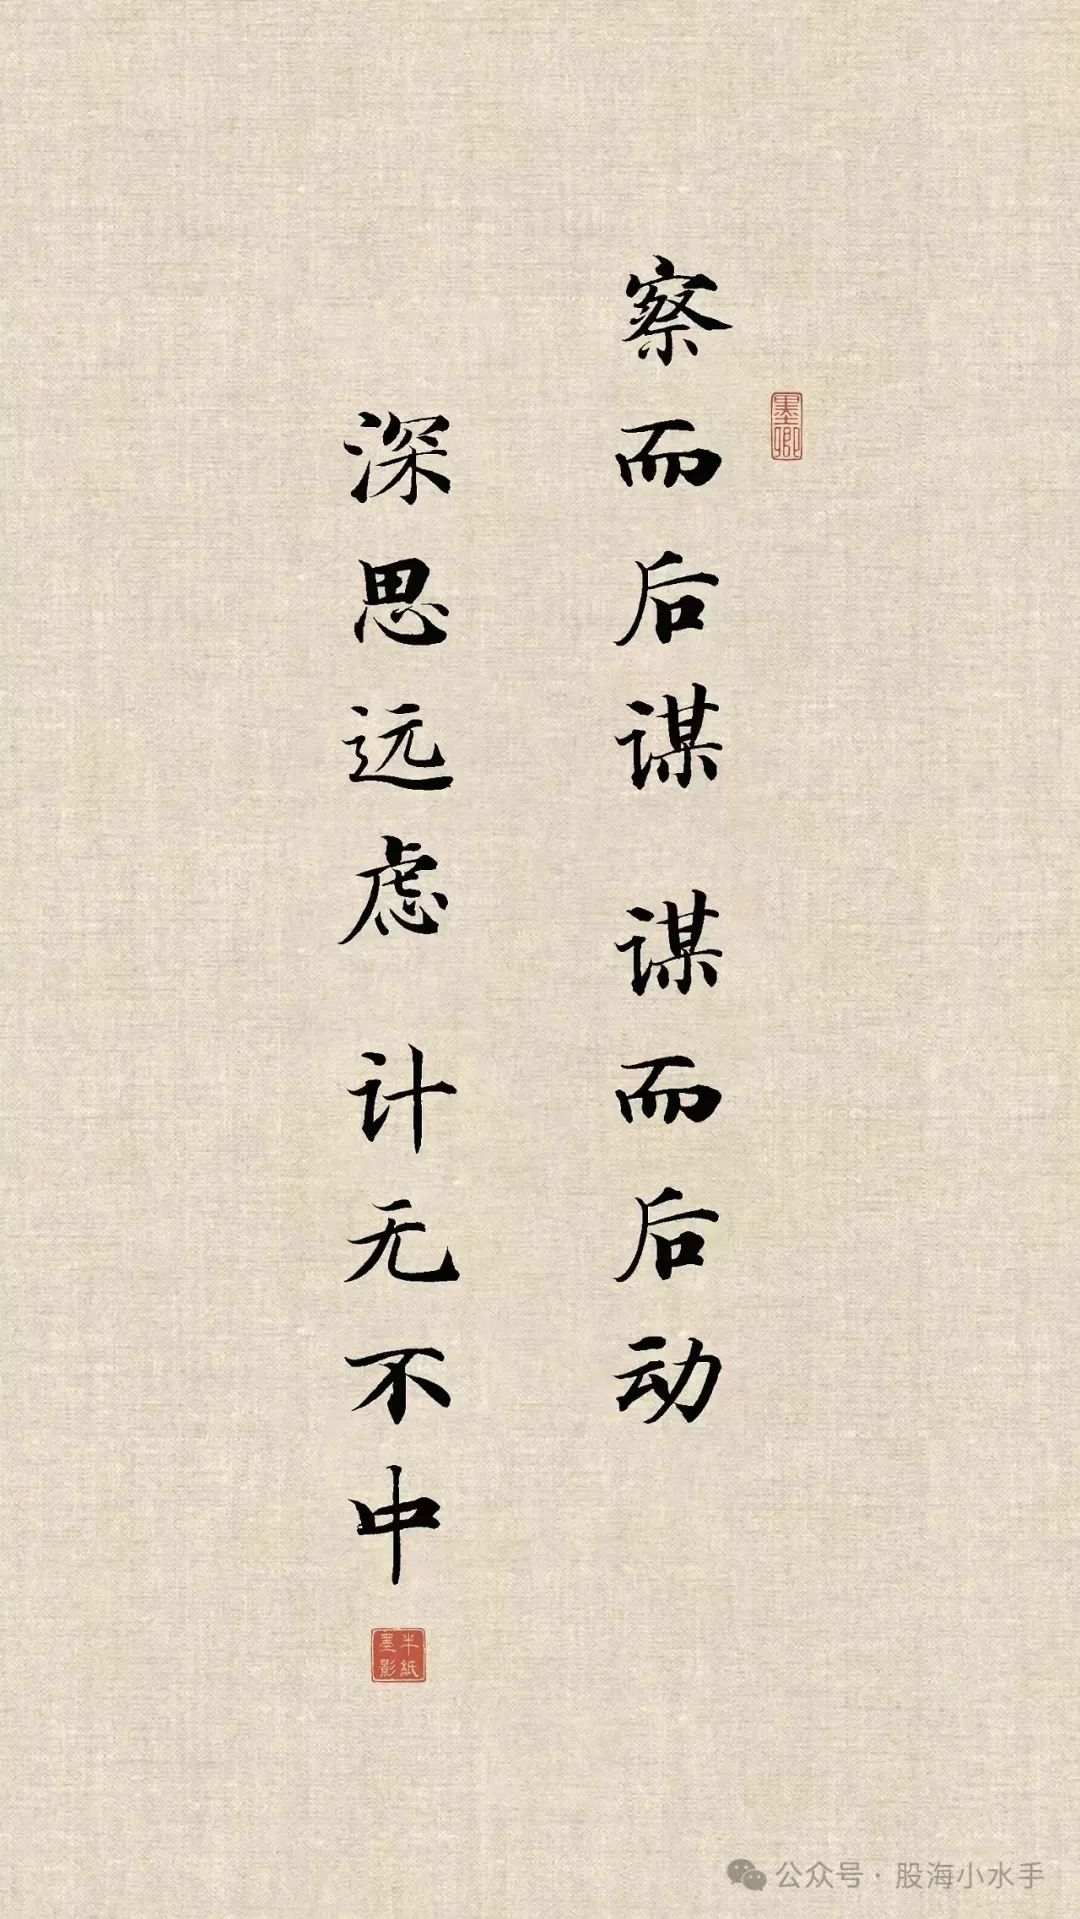 察而后谋 谋而后动
深思远虑 计无不中
墨卿
半纸墨影
公众号·股海小水手